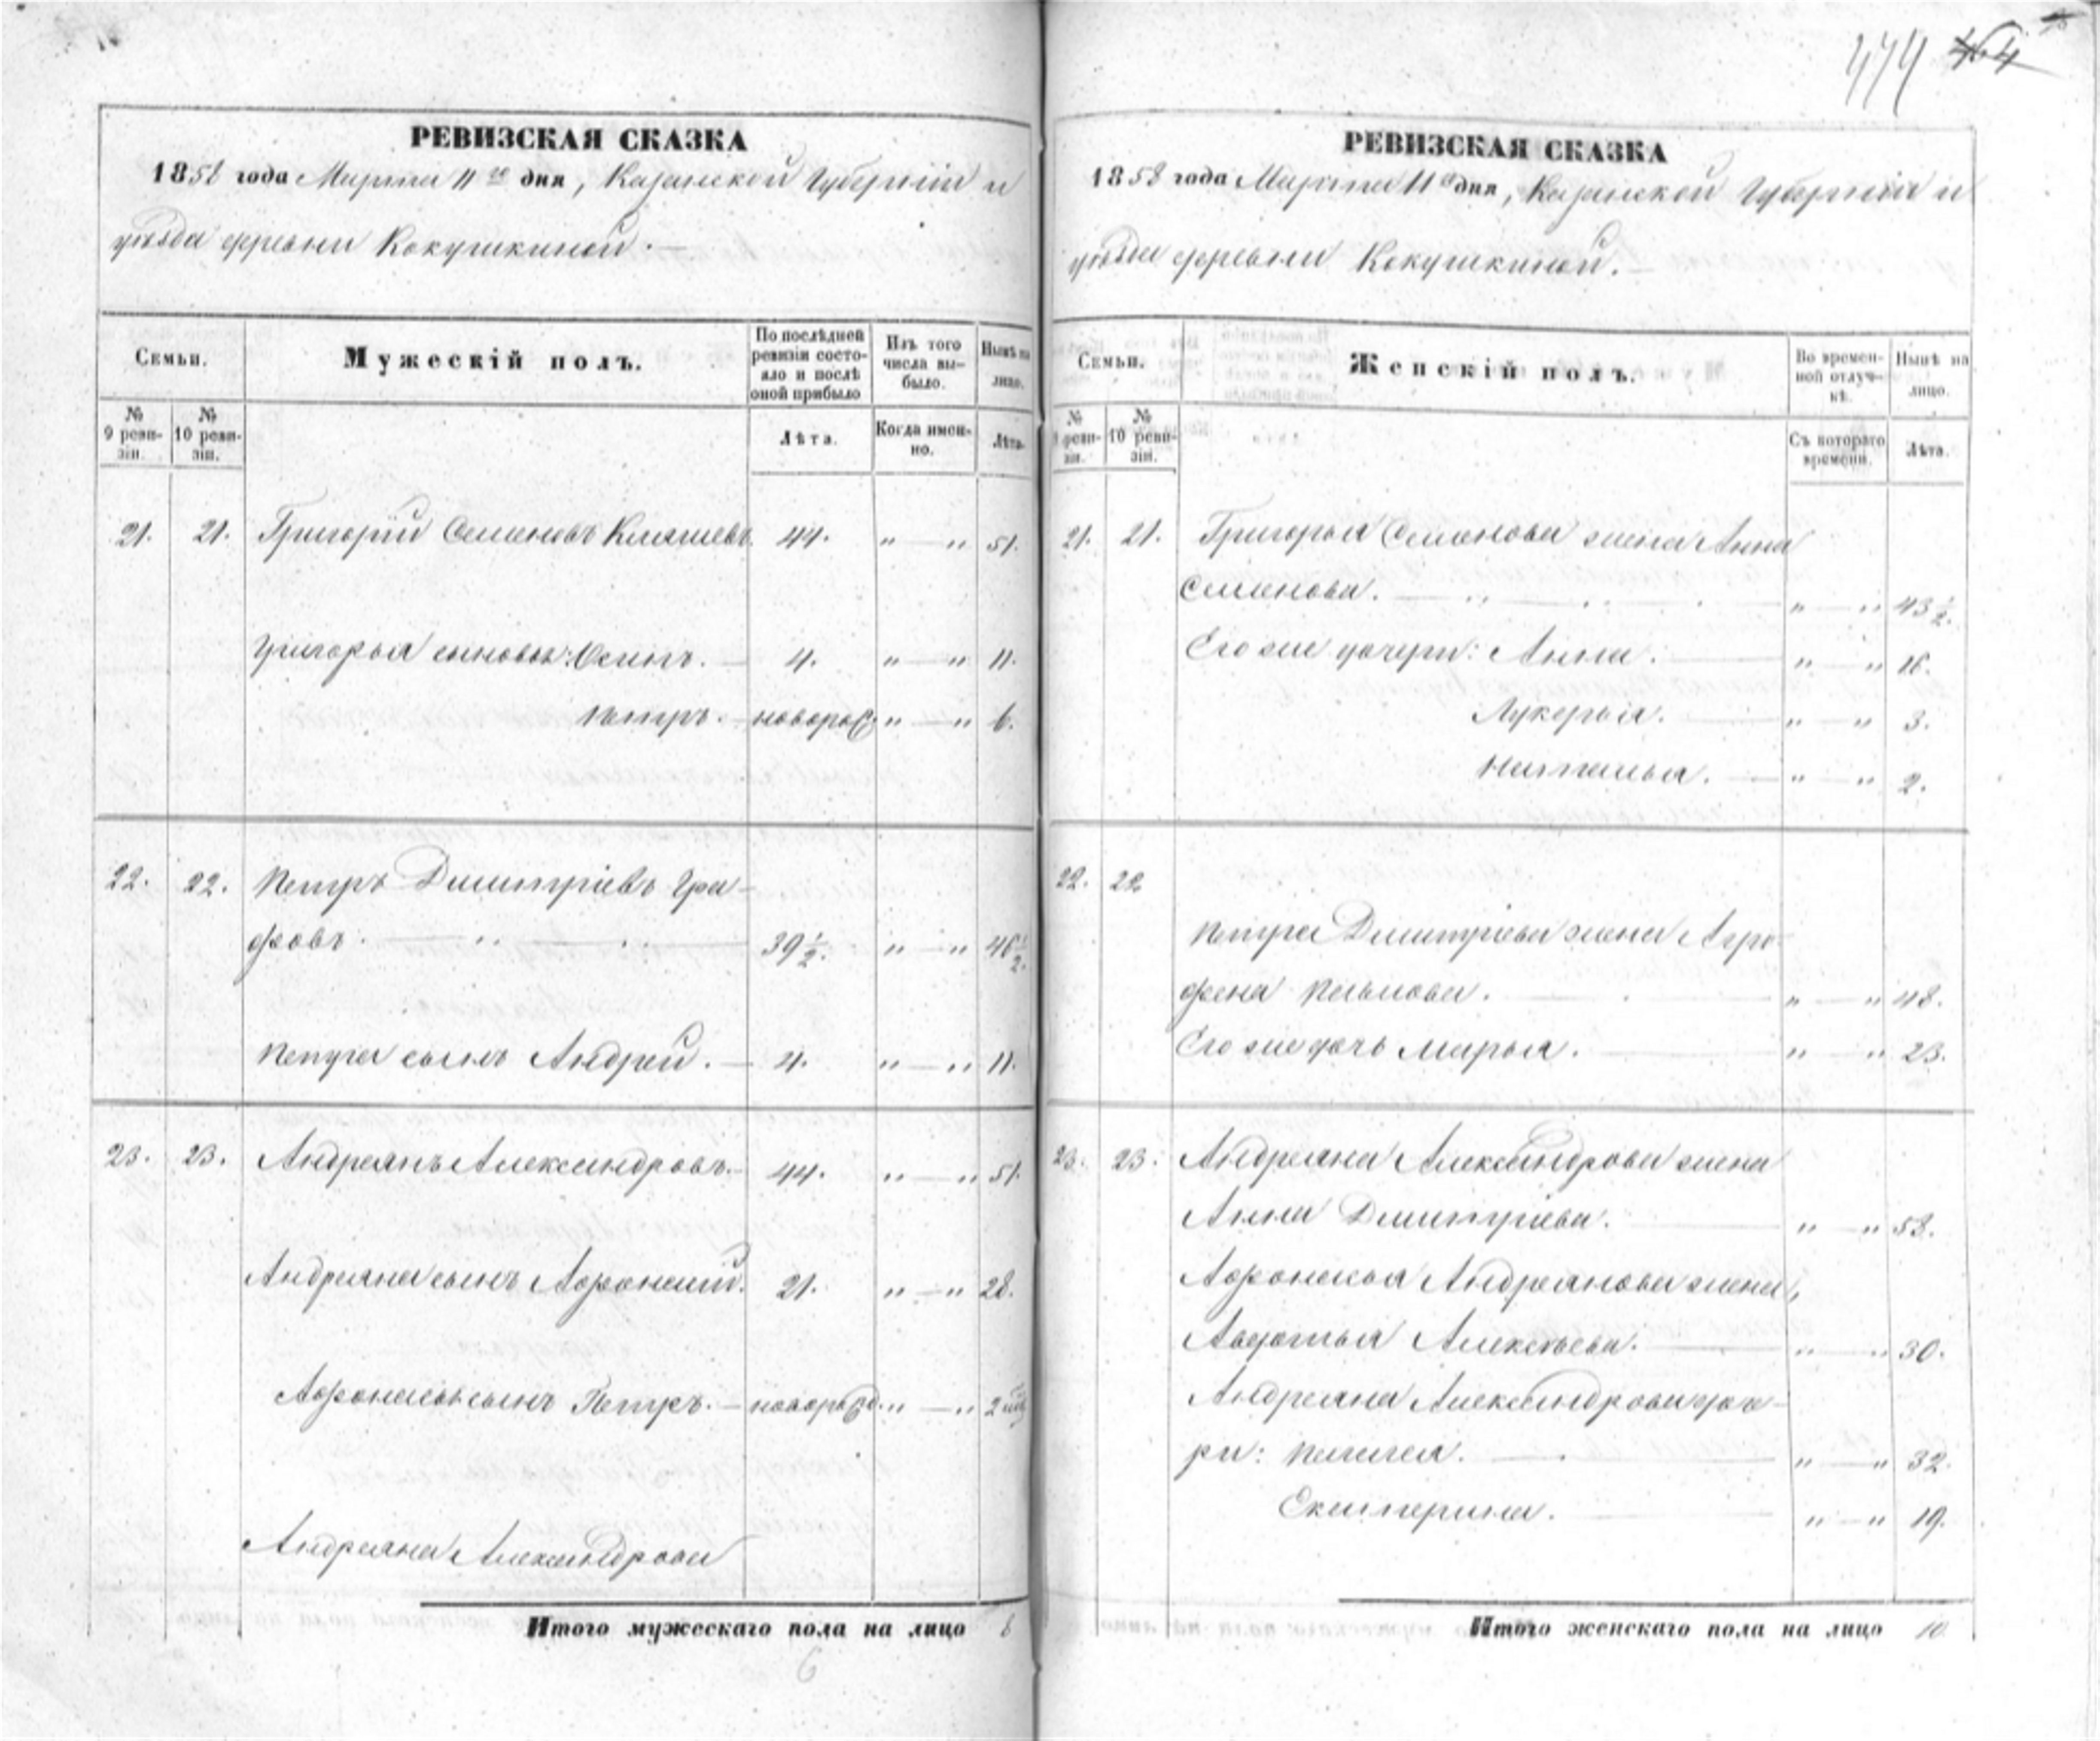 474 464
РЕВИЗСКАЯ СКАЗКА
1858 года Марта 11го дня, Казанской Губернiи и
уѣзда деревни Кокушкиной.
Семьи.
Мужескiй полъ.
По послѣдней ревизiи состояло и послѣ оной прибыло
Изъ того числа выбыло.
Нынѣ на лицо.
№ 9 ревизiи.
№ 10 ревизiи.
Лѣта.
Когда именно.
Лѣта.
21. 21. Григорiй Семеновъ 44. " — " 51.
Григорья сыновья: Осипъ. — 4. " — " 11.
Петръ. — новорож " — " 6.
22. 22. Петръ Димитрiевъ Гра-
фовъ. 39 1/2. " — " 46 1/2.
Петра сынъ Андрей. — 4. " — " 11.
23. 23. Андреянъ Александровъ. — 44. " — " 51.
Андреяна сынъ Афонасiй. 21. " — " 28.
Афонасья сынъ Петръ. — новорожд. " — " 2
Андреяна Александрова
Итого мужескаго пола на лицо 8
6
РЕВИЗСКАЯ СКАЗКА
1858 года Марта 11го дня, Казанской Губернiи и
уѣзда деревни Кокушкиной.
Семьи.
Женскiй полъ.
Во временной отлучкѣ.
Нынѣ на лицо.
№ 9 ревизiи.
№ 10 ревизiи.
Съ котораго времени.
Лѣта.
21. 21. Григорья Семенова жена Анна
Семенова. " — " 43 1/2.
Его же дочери: Анна. " — " 16.
Лукерья. " — " 3.
Наталья. " — " 2.
22. 22
Петра Димитрiева жена Агро-
фена " — " 48.
Его же дочь Марья. " — " 23.
23. 23. Андреяна Александрова жена
Анна Димитрiева. " — " 58.
Афонасья Андреянова жена,
Авдотья Алексѣева. " — " 30.
Андреяна Александрова доче-
ри: Пелагея. " — " 32.
Екатерина. " — " 19.
Итого женскаго пола на лицо 10